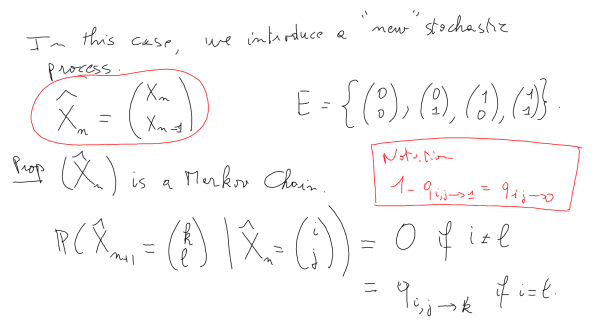 In this case, we introduce a "new" stochastic
process.
X̂_n = (X_n
X_{n-1})
E = {(0 0), (0 1), (1 0), (1 1)}.
Prop (X̂_n) is a Markov Chain.
Notation
1 - q_{i,j→1} = q_{i,j→0}
ℙ(X̂_{n+1} = (k ℓ) | X̂_n = (i j)) = 0 if i ≠ ℓ
= q_{i,j→k} if i = ℓ.